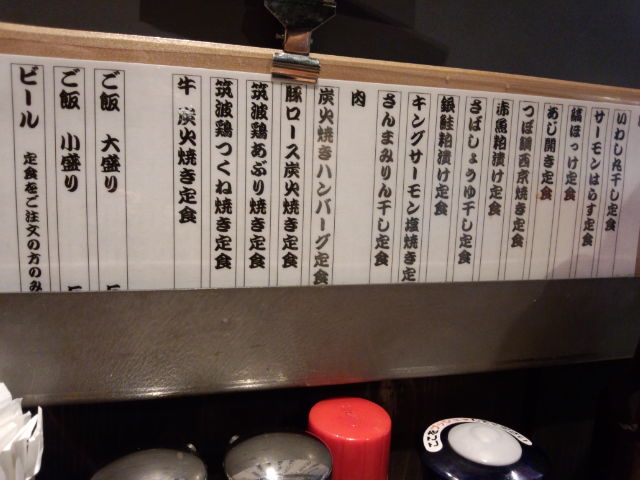 いわしみりん干し定食
サーモンはらす定食
縞ほっけ定食
あじ開き定食
つぼ鯛西京焼き定食
赤魚粕漬け定食
さばしょうゆ干し定食
銀鮭粕漬け定食
キングサーモン塩焼き定
さんまみりん干し定食
肉
炭火焼きハンバーグ定食
豚ロース炭火焼き定食
筑波鶏あぶり焼き定食
筑波鶏つくね焼き定食
牛 炭火焼き定食
ご飯 大盛り
ご飯 小盛り
ビール 定食をご注文の方のみ